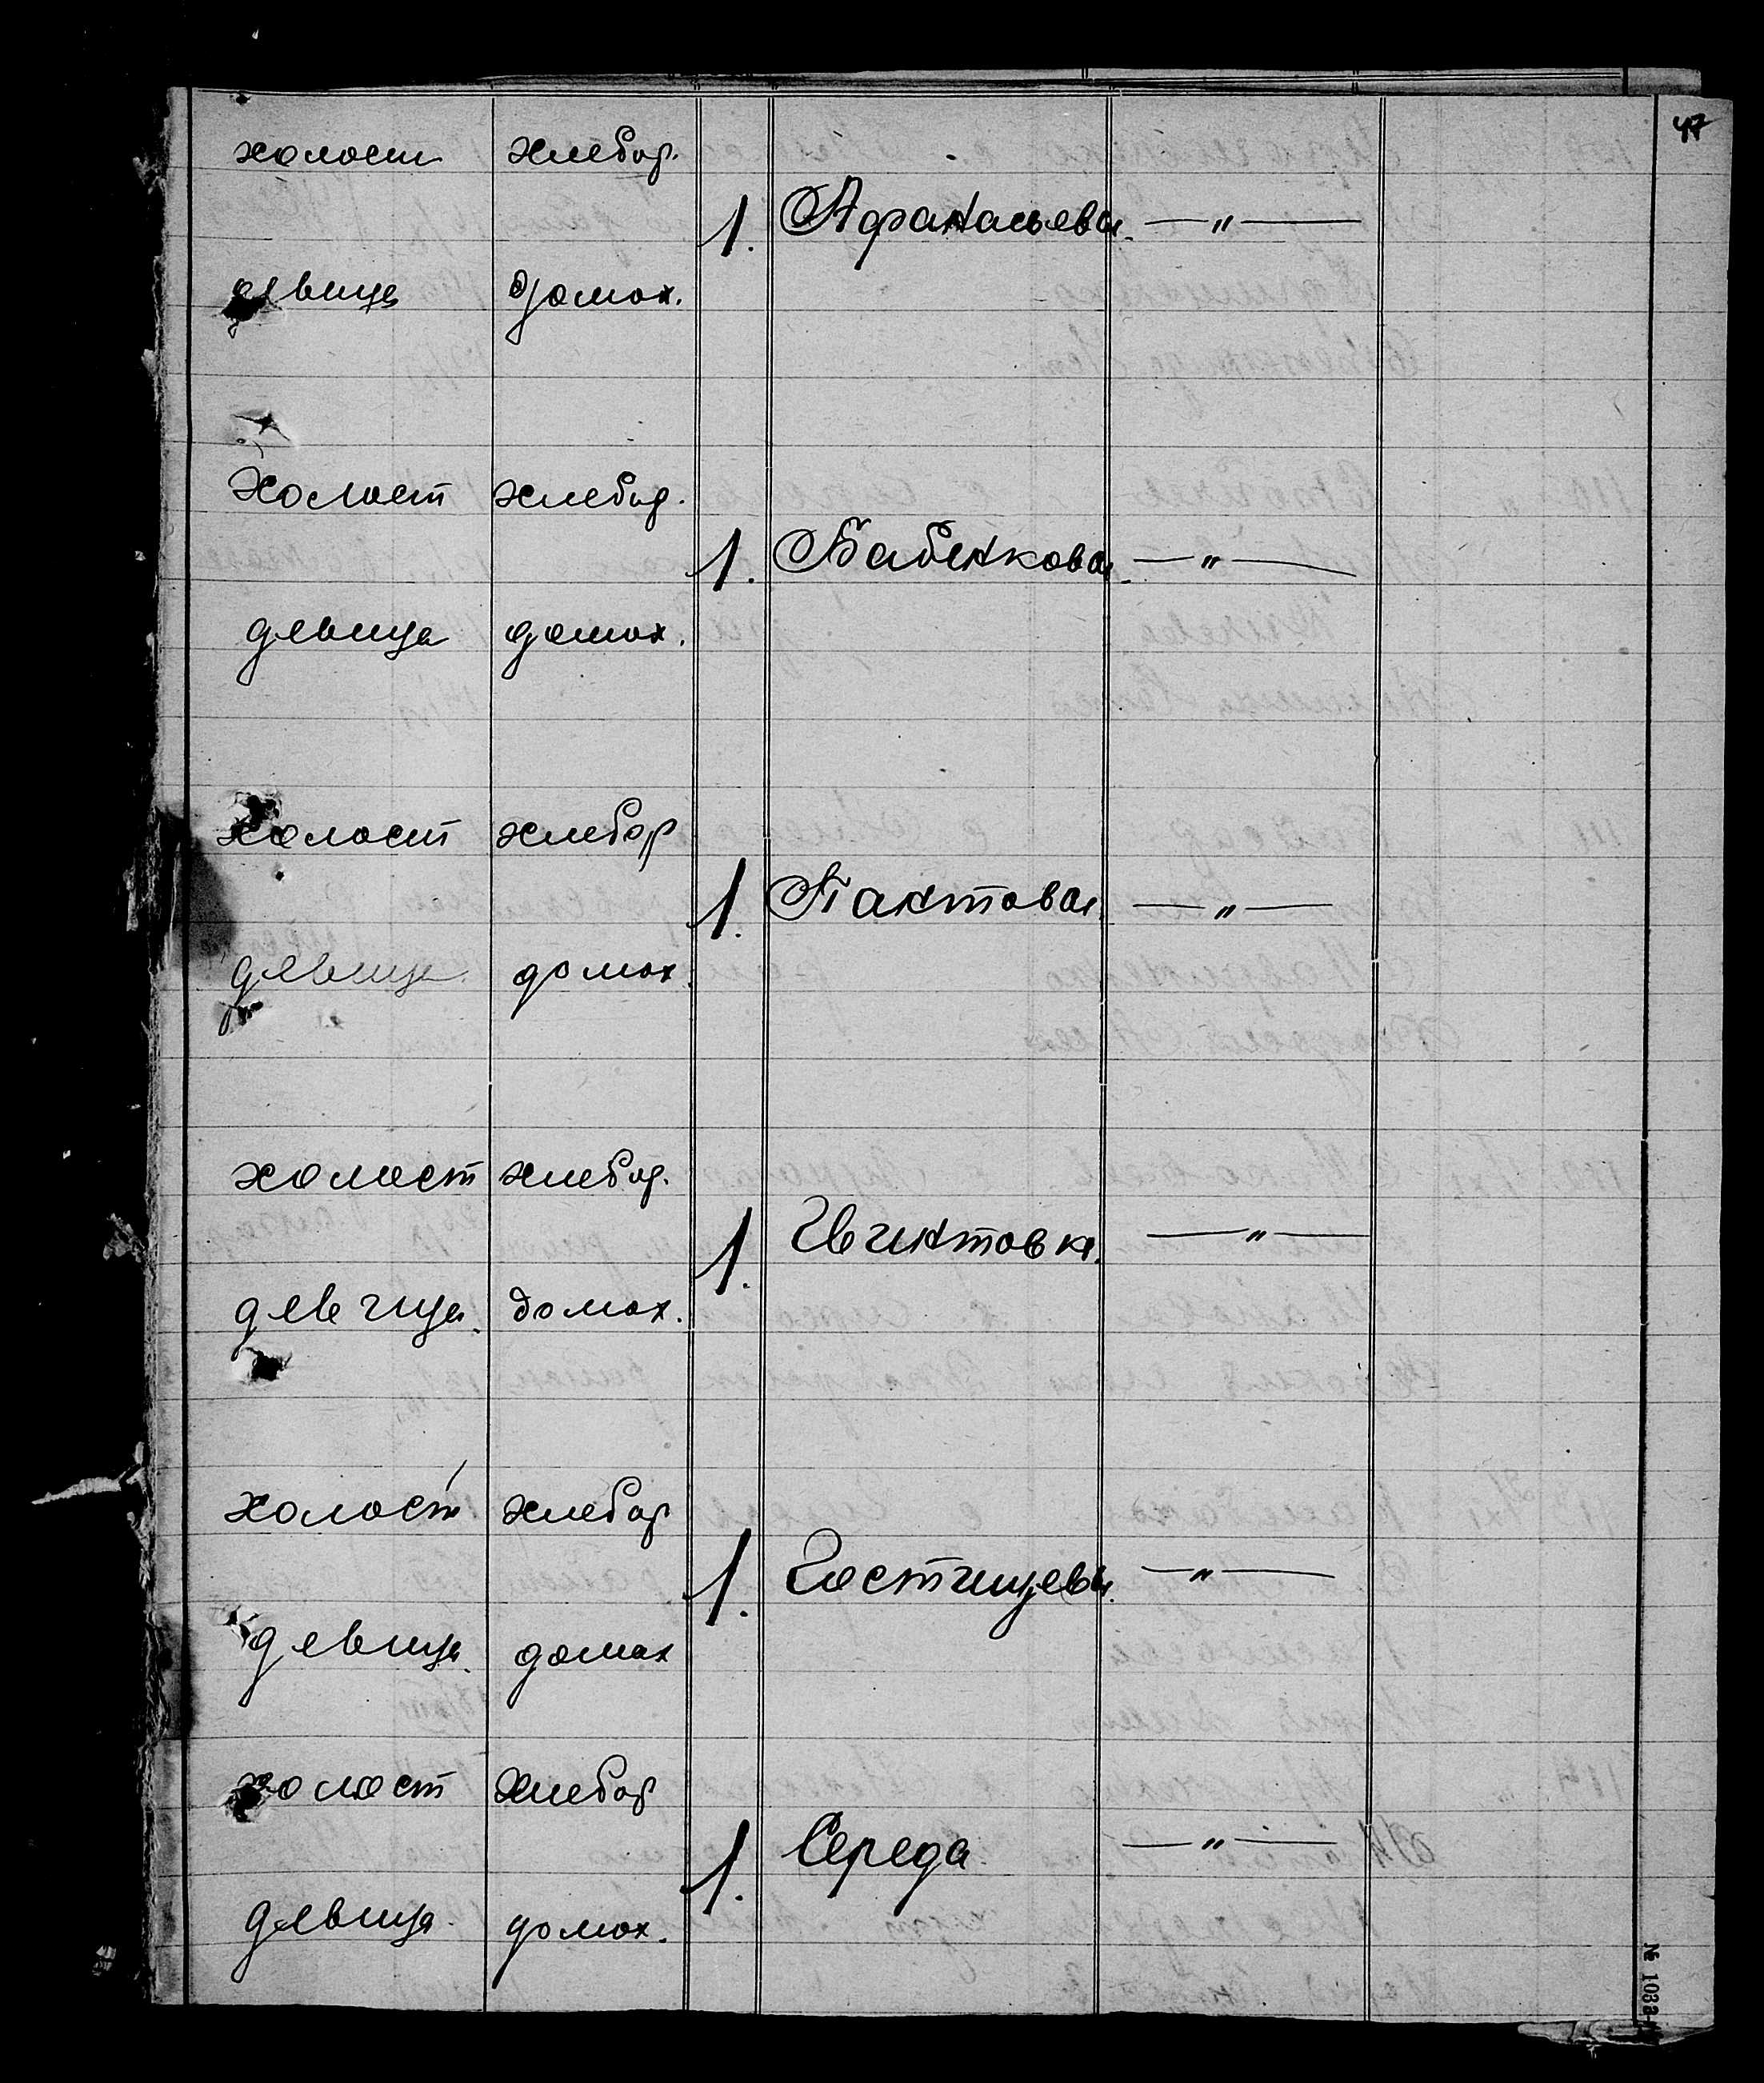 47
холост хлебор.
1. Афанасьевы — " —
девица домох.
холост хлебор.
1. Бабенкова — " —
девица домох.
холост хлебор
1. Пактовы — " —
девица домох.
холост хлебор.
1. — " —
девица домох.
холост хлебор
1. Гостищевы — " —
девица домох
холост хлебор
1. Середа — " —
девица домох.
№ 103